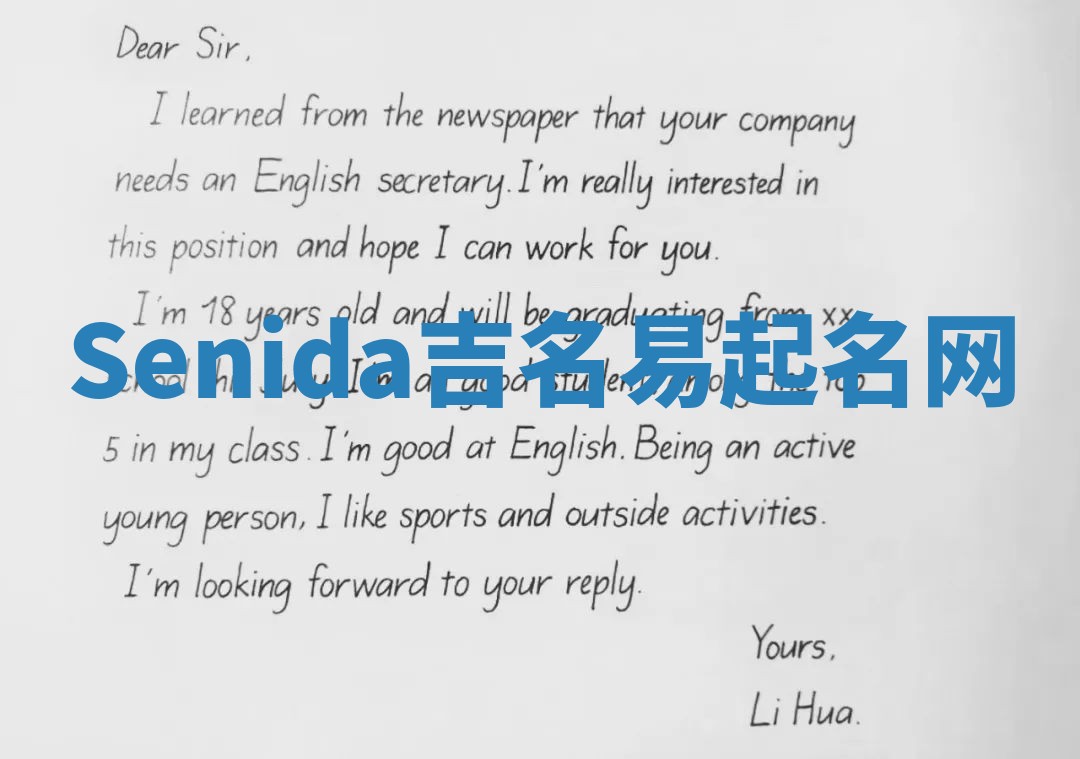 Dear Sir,
I learned from the newspaper that your company
needs an English secretary. I'm really interested in
this position and hope I can work for you.
I'm 18 years old and will be graduating from xx
Senida吉名易起名网
school this July. I'm a good student among the top
5 in my class. I'm good at English. Being an active
young person, I like sports and outside activities.
I'm looking forward to your reply.
Yours,
Li Hua.